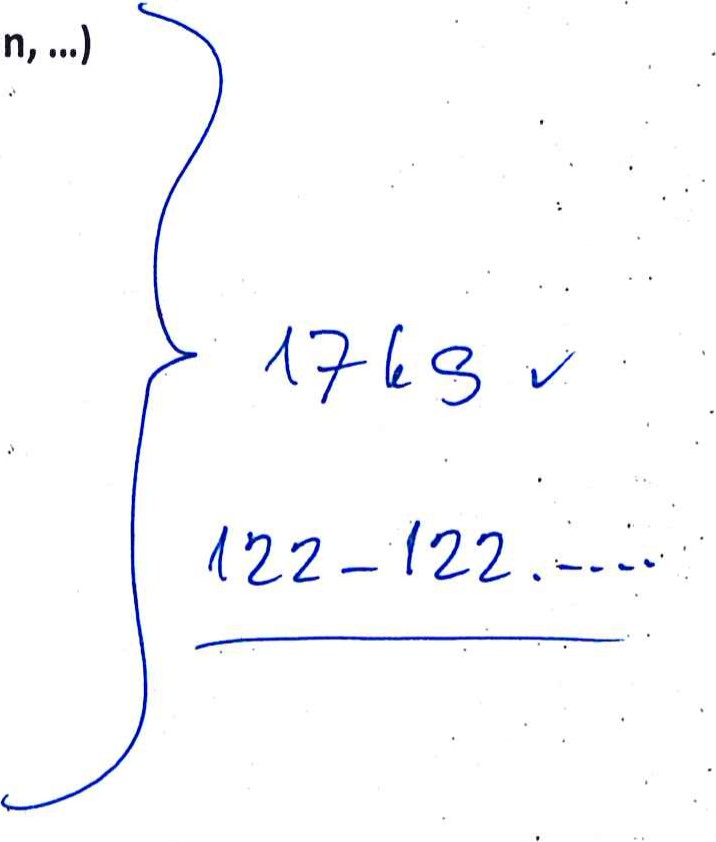 n, ...)
17 kg ✓
122-122.-----